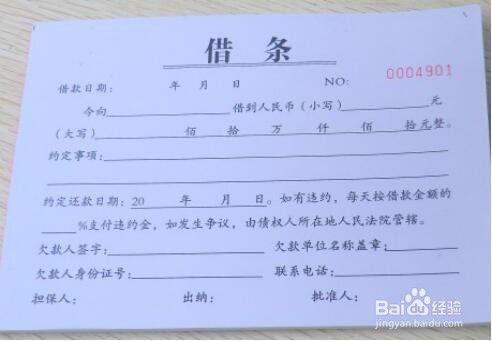 借 条
借款日期： 年 月 日 NO: 0004901
今向 借到人民币（小写） 元
（大写） 佰 拾 万 仟 佰 拾元整。
约定事项：
约定还款日期：20 年 月 日。如有违约，每天按借款金额的
%支付违约金，如发生争议，由债权人所在地人民法院管辖。
欠款人签字： 欠款单位名称盖章：
欠款人身份证号： 联系电话：
担保人： 出纳： 批准人：
Baidu 经验
jingyan.baidu.com